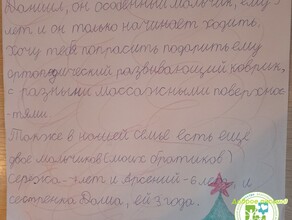 Даниил, он особенный мальчик, ему 5
лет и он только начинает ходить.
Хочу тебя попросить подарить ему
ортопедический развивающий коврик,
с разными массажными поверхнос-
тями.
Также в нашей семье есть ещё
двое мальчиков (моих братиков)
Серёжа - лет и Арсений - 6 лет и
сестрёнка Дома, ей 3 года.